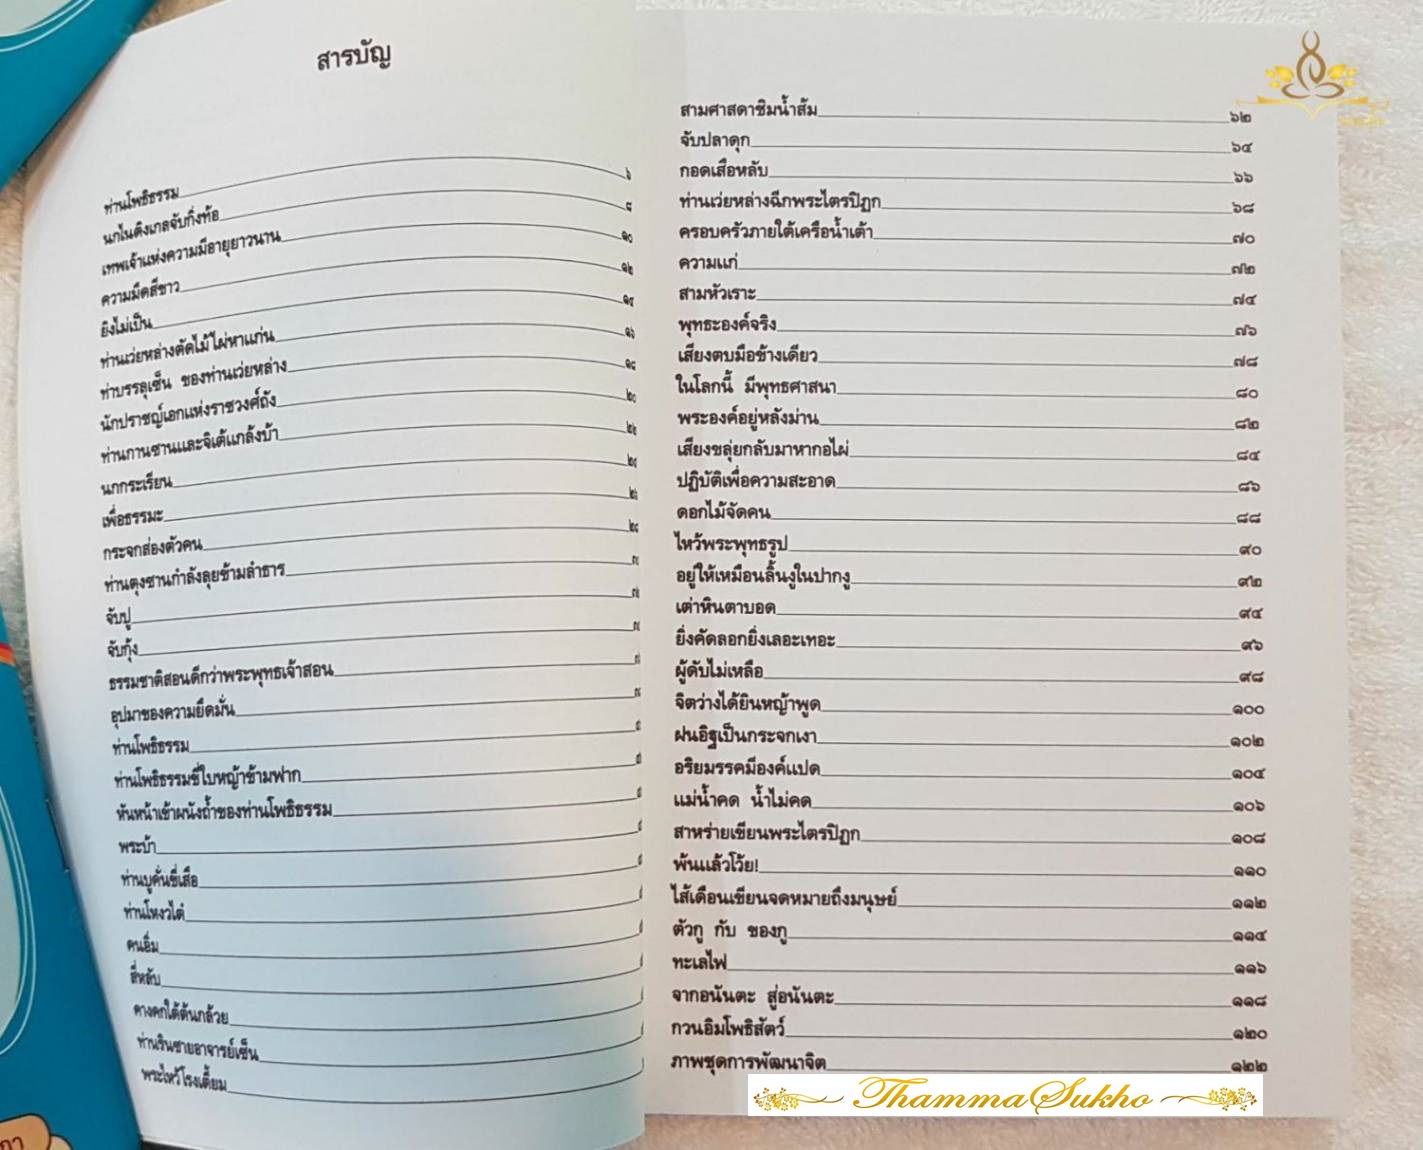 สารบัญ
ท่านโพธิธรรม ๖
นกไนติงเกลจับกิ่งท้อ ๘
เทพเจ้าแห่งความมีอายุยาวนาน ๑๐
ความมืดสีขาว ๑๒
ยิงไม่เป็น ๑๔
ท่านเว่ยหล่างตัดไม้ไผ่หาแก่น ๑๖
ท่าบรรลุเซ็น ของท่านเว่ยหล่าง ๑๘
นักปราชญ์เอกแห่งราชวงศ์ถัง ๒๐
ท่านกานซานและจิเต้แกล้งบ้า ๒๒
นกกระเรียน ๒๔
เพื่อธรรมะ ๒๖
กระจกส่องตัวคน ๒๘
ท่านตุงซานกำลังลุยข้ามลำธาร
จับปู
จับกุ้ง
ธรรมชาติสอนดีกว่าพระพุทธเจ้าสอน
อุปมาของความยึดมั่น
ท่านโพธิธรรม
ท่านโพธิธรรมขี่ใบหญ้าข้ามฟาก
หันหน้าเข้าผนังถ้ำของท่านโพธิธรรม
พระบ้า
ท่านบูคั่นขี่เสือ
ท่านโหงวไต๋
คนอิ่ม
สี่หลับ
คางคกใต้ต้นกล้วย
ท่านรินซายอาจารย์เซ็น
พระไหว้โรงเตี๊ยม
สามศาสดาชิมน้ำส้ม ๖๒
จับปลาดุก ๖๔
กอดเสือหลับ ๖๖
ท่านเว่ยหล่างฉีกพระไตรปิฎก ๖๘
ครอบครัวภายใต้เครือน้ำเต้า ๗๐
ความแก่ ๗๒
สามหัวเราะ ๗๔
พุทธะองค์จริง ๗๖
เสียงตบมือข้างเดียว ๗๘
ในโลกนี้ มีพุทธศาสนา ๘๐
พระองค์อยู่หลังม่าน ๘๒
เสียงขลุ่ยกลับมาหากอไผ่ ๘๔
ปฏิบัติเพื่อความสะอาด ๘๖
ดอกไม้จัดคน ๘๘
ไหว้พระพุทธรูป ๙๐
อยู่ให้เหมือนลิ้นงูในปากงู ๙๒
เต่าหินตาบอด ๙๔
ยิ่งคัดลอกยิ่งเลอะเทอะ ๙๖
ผู้ดับไม่เหลือ ๙๘
จิตว่างได้ยินหญ้าพูด ๑๐๐
ฝนอิฐเป็นกระจกเงา ๑๐๒
อริยมรรคมีองค์แปด ๑๐๔
แม่น้ำคด น้ำไม่คด ๑๐๖
สาหร่ายเขียนพระไตรปิฎก ๑๐๘
พ้นแล้วโว้ย! ๑๑๐
ไส้เดือนเขียนจดหมายถึงมนุษย์ ๑๑๒
ตัวกู กับ ของกู ๑๑๔
ทะเลไฟ ๑๑๖
จากอนันตะ สู่อนันตะ ๑๑๘
กวนอิมโพธิสัตว์ ๑๒๐
ภาพชุดการพัฒนาจิต ๑๒๒
ThammaSukho